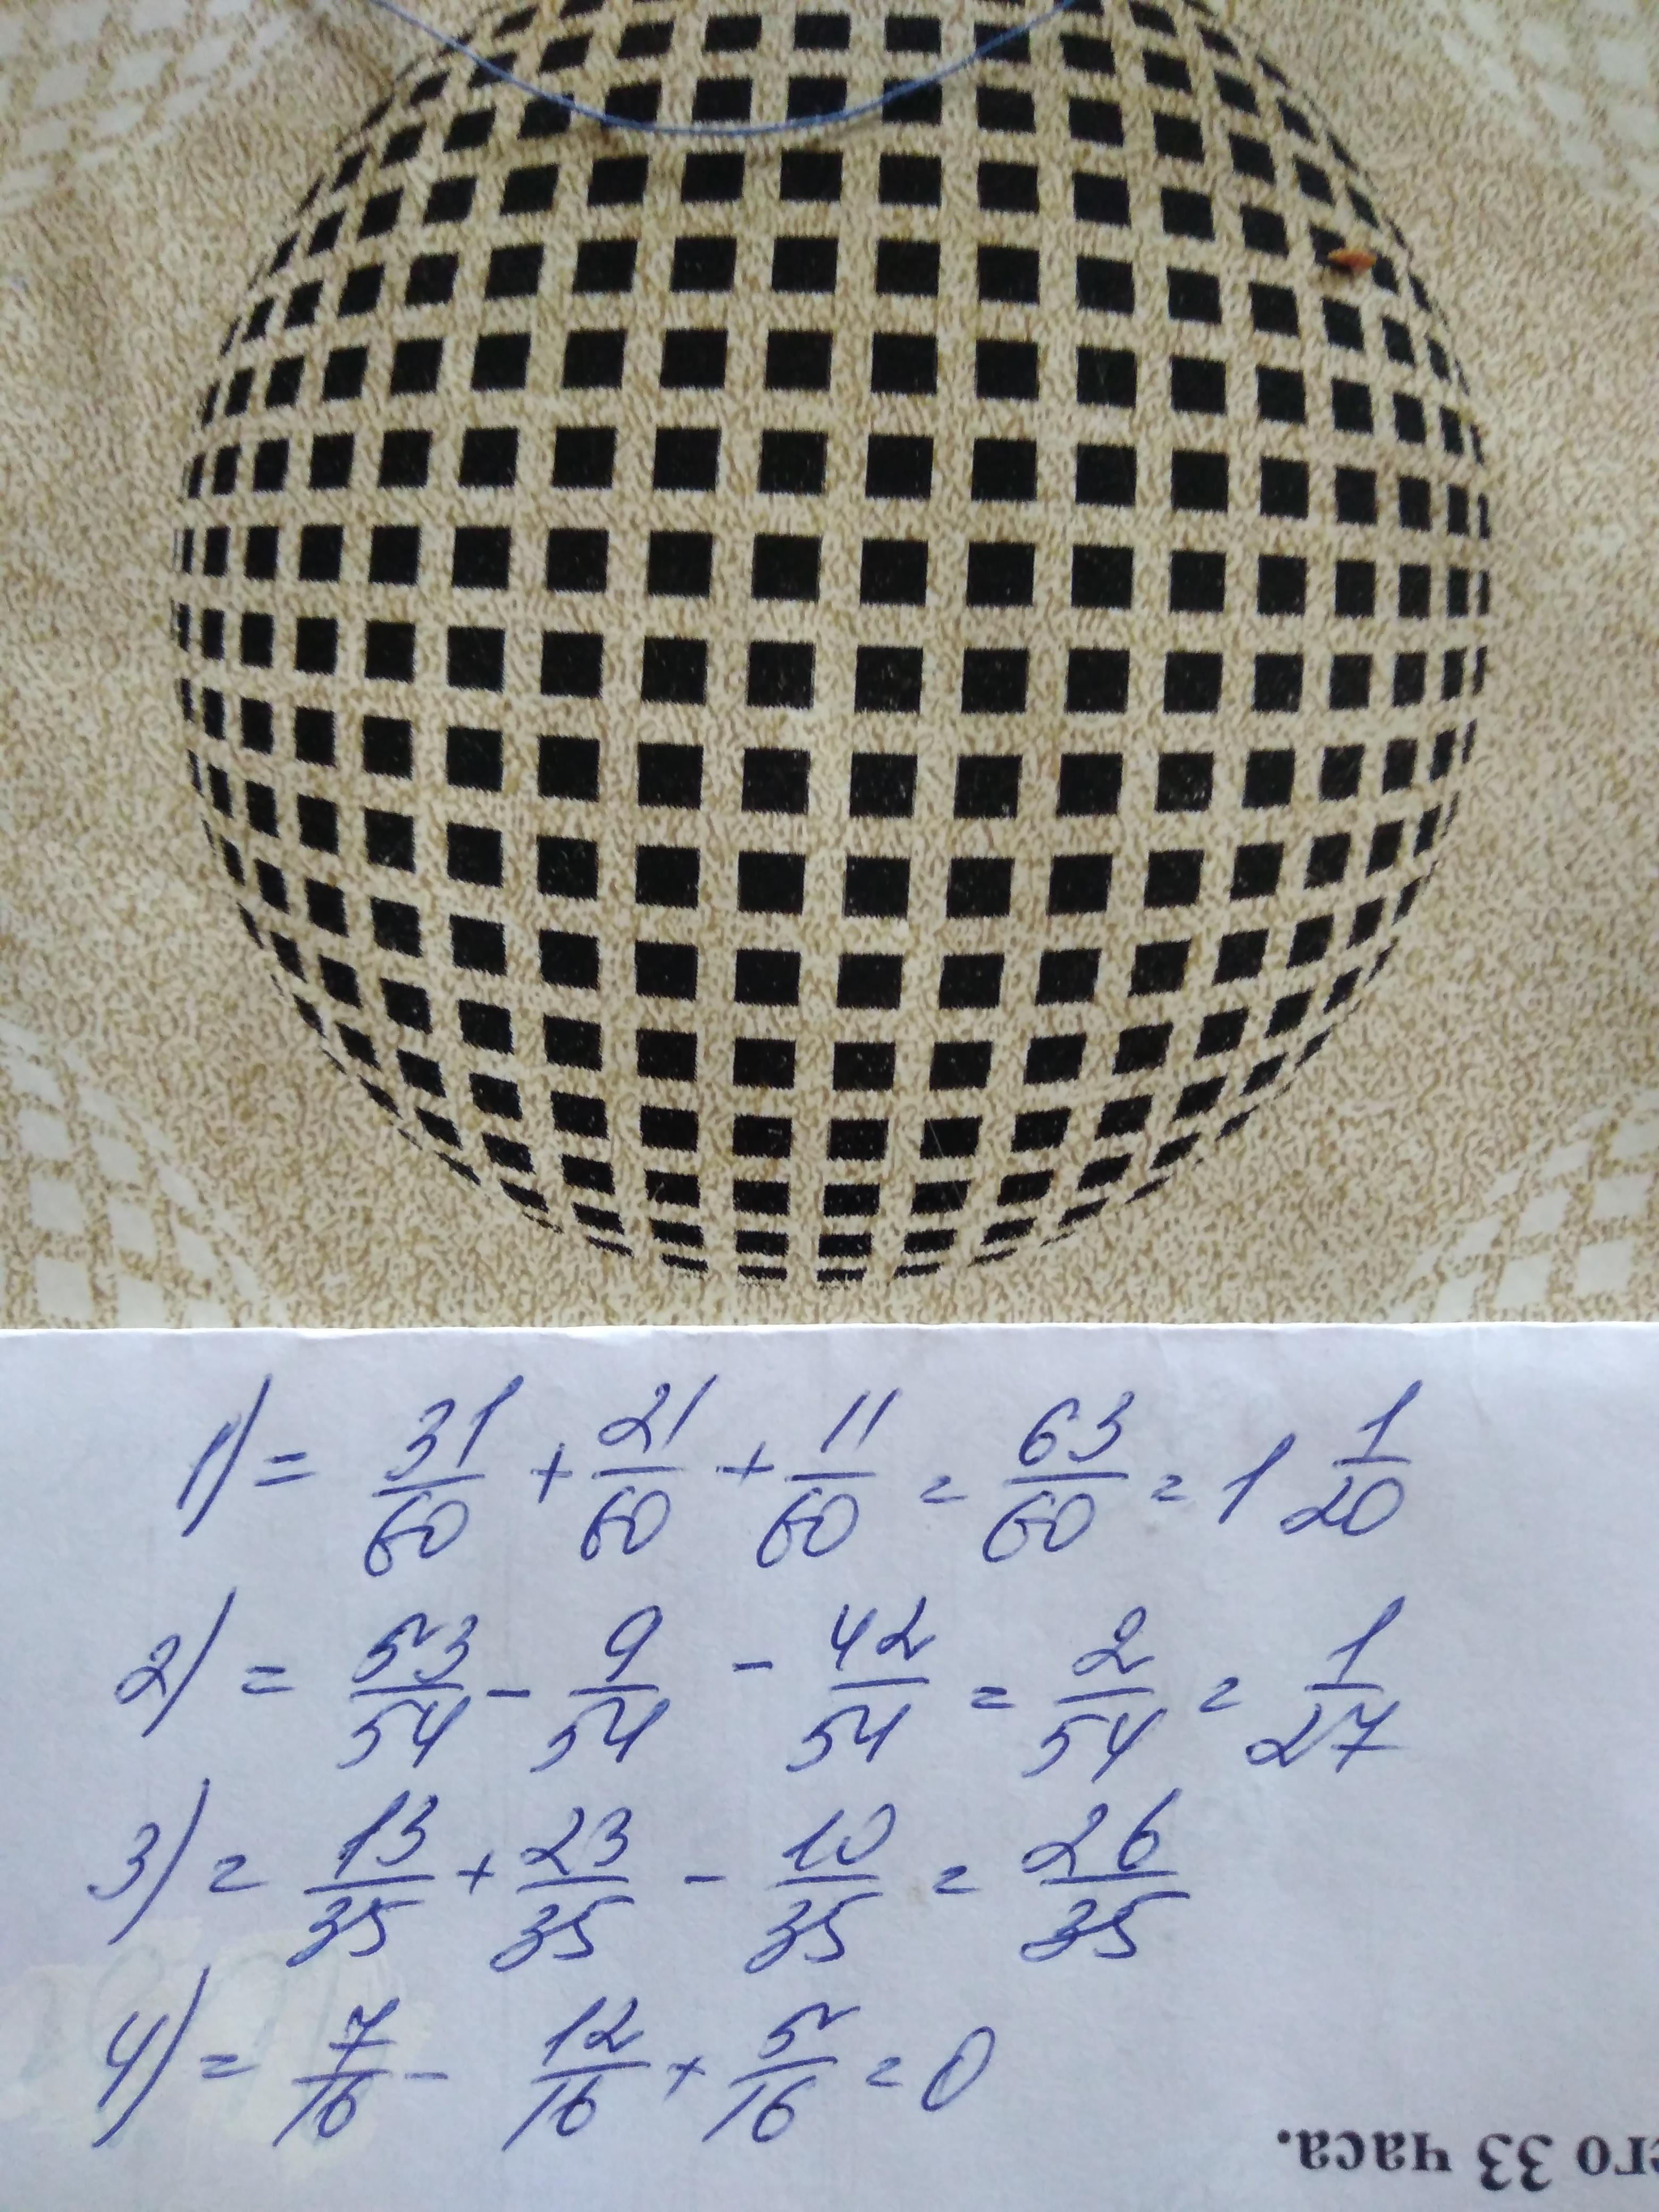 1) = 31/60 + 21/60 + 11/60 = 63/60 = 1 1/20
2) = 53/54 - 9/54 - 42/54 = 2/54 = 1/27
3) = 13/35 + 23/35 - 10/35 = 26/35
4) = 7/16 - 12/16 + 5/16 = 0
его 33 часа.